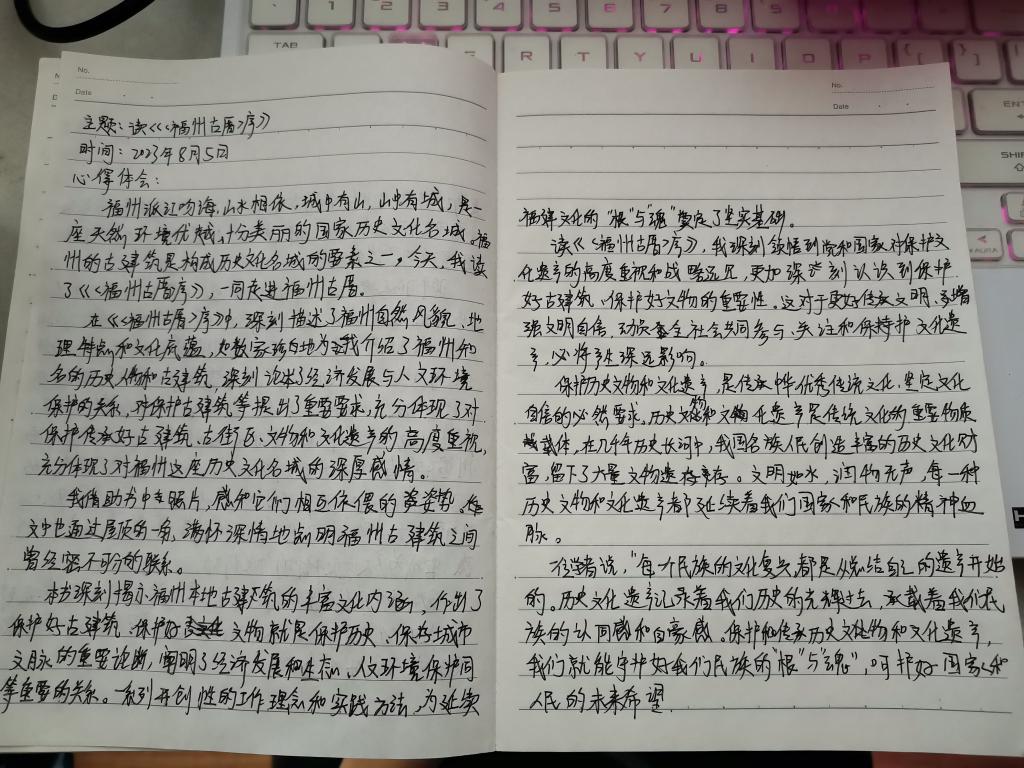 No.
Date
主题：读《《福州古厝》序》
时间：2023年8月5日
心得体会：
福州派江吻海，山水相依，城中有山，山中有城，是一
座天然环境优越，十分美丽的国家历史文化名城。福
州的古建筑是构成历史文化名城的要素之一。今天，我读
了《《福州古厝》序》，一同走进福州古厝。
在《《福州古厝》序》中，深刻描述了福州自然风貌、地
理特点和文化底蕴，如数家珍地为我介绍了福州知
名的历史人物和古建筑，深刻论述了经济发展与人文环境
保护的关系，对保护古建筑等提出了重要要求，充分体现了对
保护传承好古建筑、古街区、文物和文化遗产的高度重视，
充分体现了对福州这座历史文化名城的深厚感情。
我借助书中专照片，感知它们相互依偎的姿势。
文中也通过屋顶的一角，满怀深情地点明福州古建筑之间
曾经密不可分的联系。
本书深刻揭示福州本地古建筑的丰富文化内涵，作出了
保护好古建筑、保护好文物就是保护历史、保存城市
文脉的重要论断，阐明了经济发展和生态、人文环境保护同
等重要的关系。一系列开创性的工作理念和实践方法，为延续
No.
Date
福建文化的“根”与“魂”奠定了坚实基础。
读《《福州古厝》序》，我深刻领悟到党和国家对保护文
化遗产的高度重视和战略远见，更加深刻认识到保护
好古建筑、保护好文物的重要性。这对于更好传承文明、增
强文明自信，动员全社会共同参与、关注和保护文化遗
产，必将产生深远影响。
保护历史文物和文化遗产，是传承中华优秀传统文化，坚定文化
自信的必然要求。历史文物和文化遗产是传统文化的重要物质
载体，在几千年历史长河中，我国各族人民创造丰富的历史文化财
富，留下了大量文物遗存。文明如水，润物无声，每一种
历史文物和文化遗产都延续着我们国家和民族的精神血
脉。
有学者说，“每个民族的文化复兴，都是从总结自己的遗产开始
的。历史文化遗产记录着我们历史的光辉过去，承载着我们民
族的认同感和自豪感。保护和传承历史文物和文化遗产，
我们就能守护好我们民族的“根”与“魂”，呵护好国家和
人民的未来希望
TAB